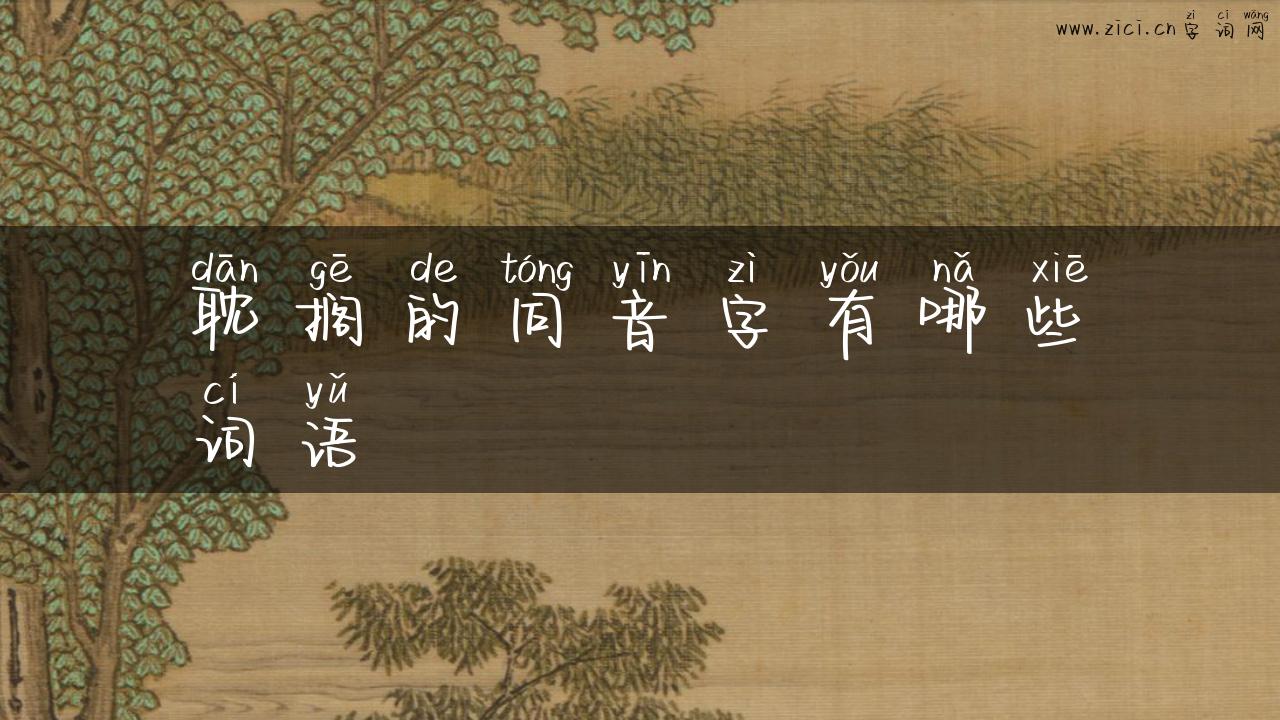 zì cí wǎng
www.zici.cn字词网
dān gē de tóng yīn zì yǒu nǎ xiē
耽搁的同音字有哪些
cí yǔ
词语